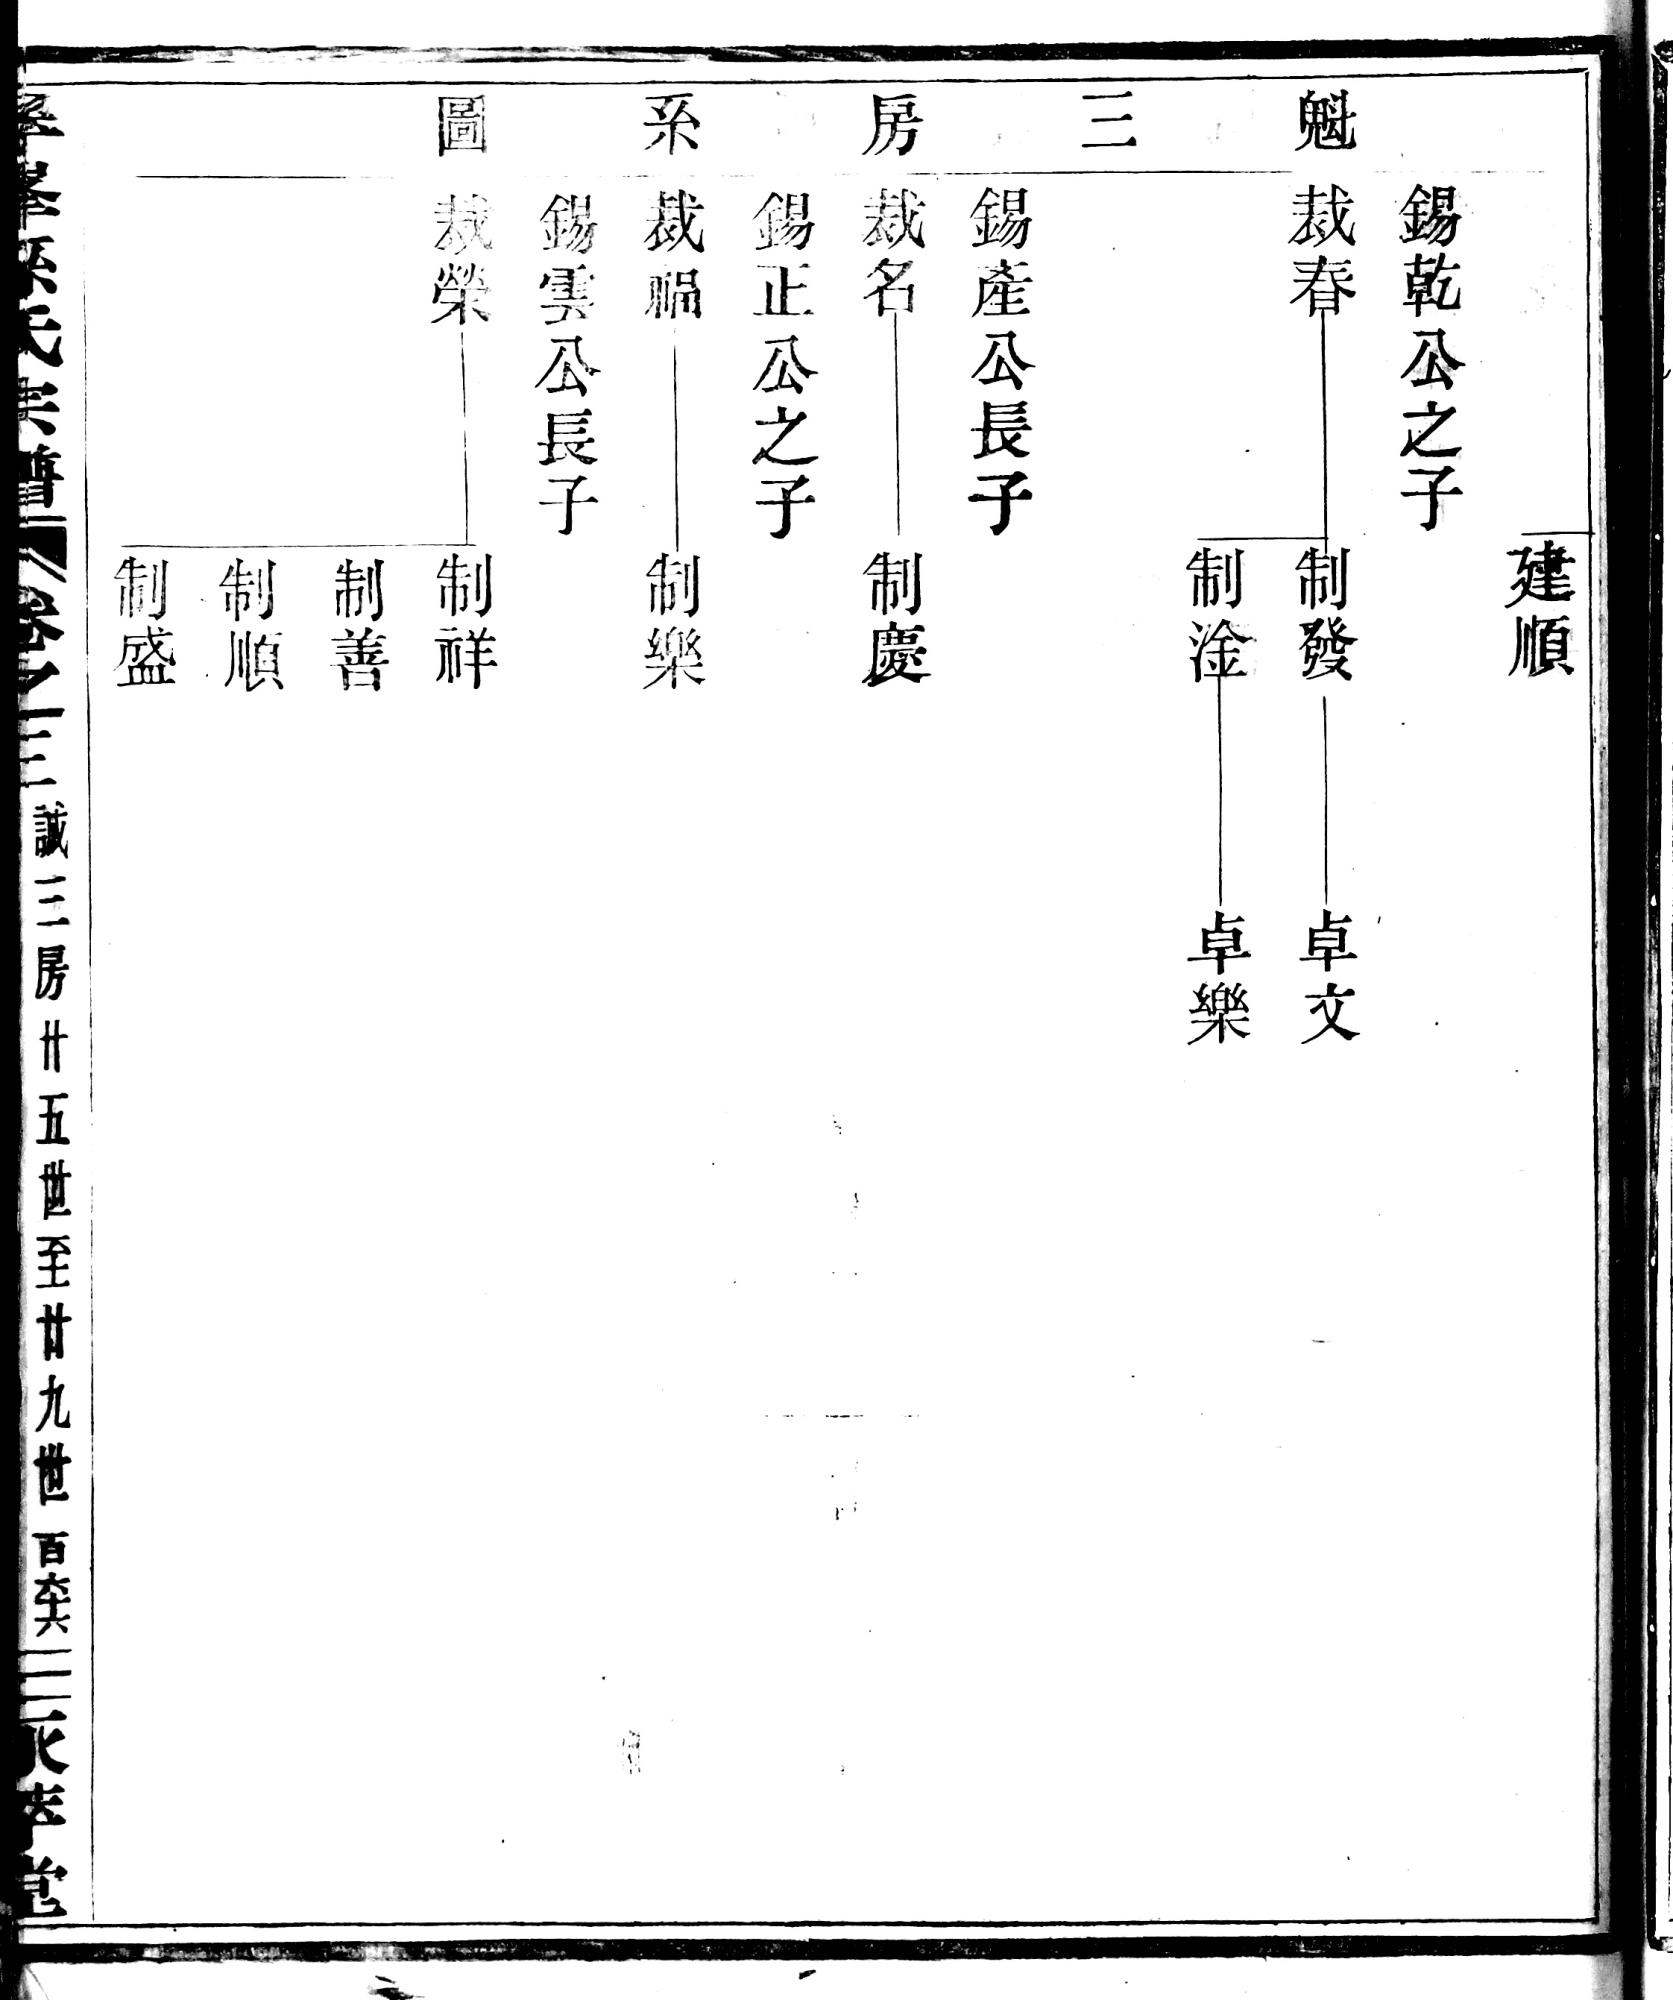 魁三房系圖
建順
錫乾公之子
裁春
制發
卓文
制淦
卓樂
錫產公長子
裁名
制慶
錫正公之子
裁福
制樂
錫雲公長子
裁榮
制祥
制善
制順
制盛
氏宗譜
卷之三
誠三房廿五世至廿九世
百
堂